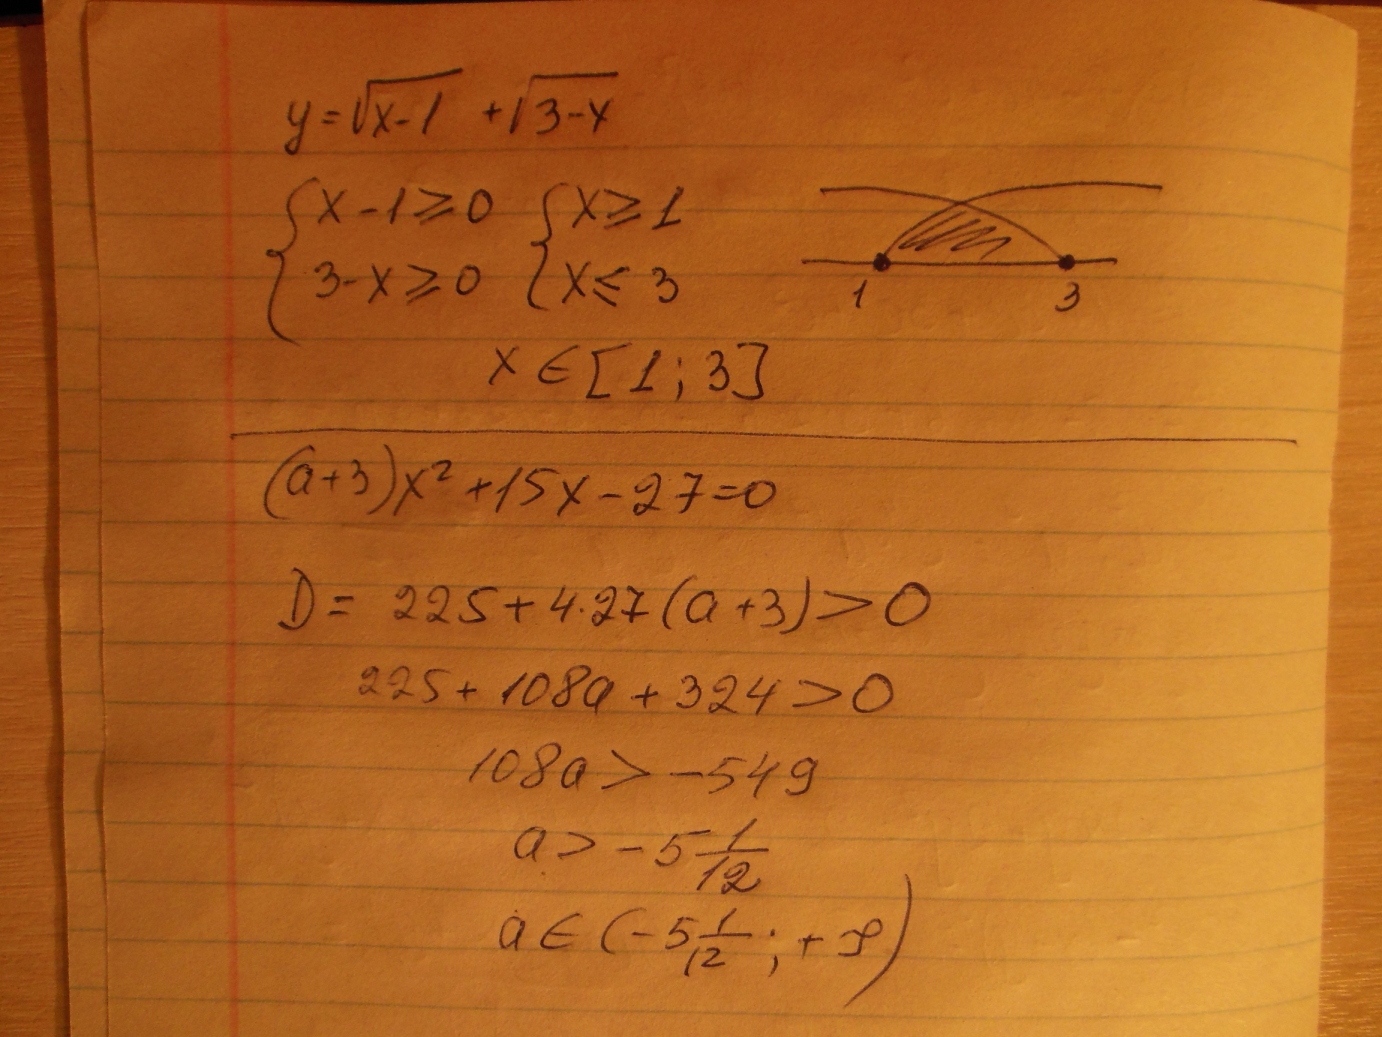 y=√x-1 +√3-x
{x-1≥0 {x≥1
3-x≥0 x≤3
1 3
x∈[1;3]
(a+3)x²+15x-27=0
D= 225+4·27(a+3)>0
225+108a+324>0
108a>-549
a>-5 1/12
a∈(-5 1/12; +∞)